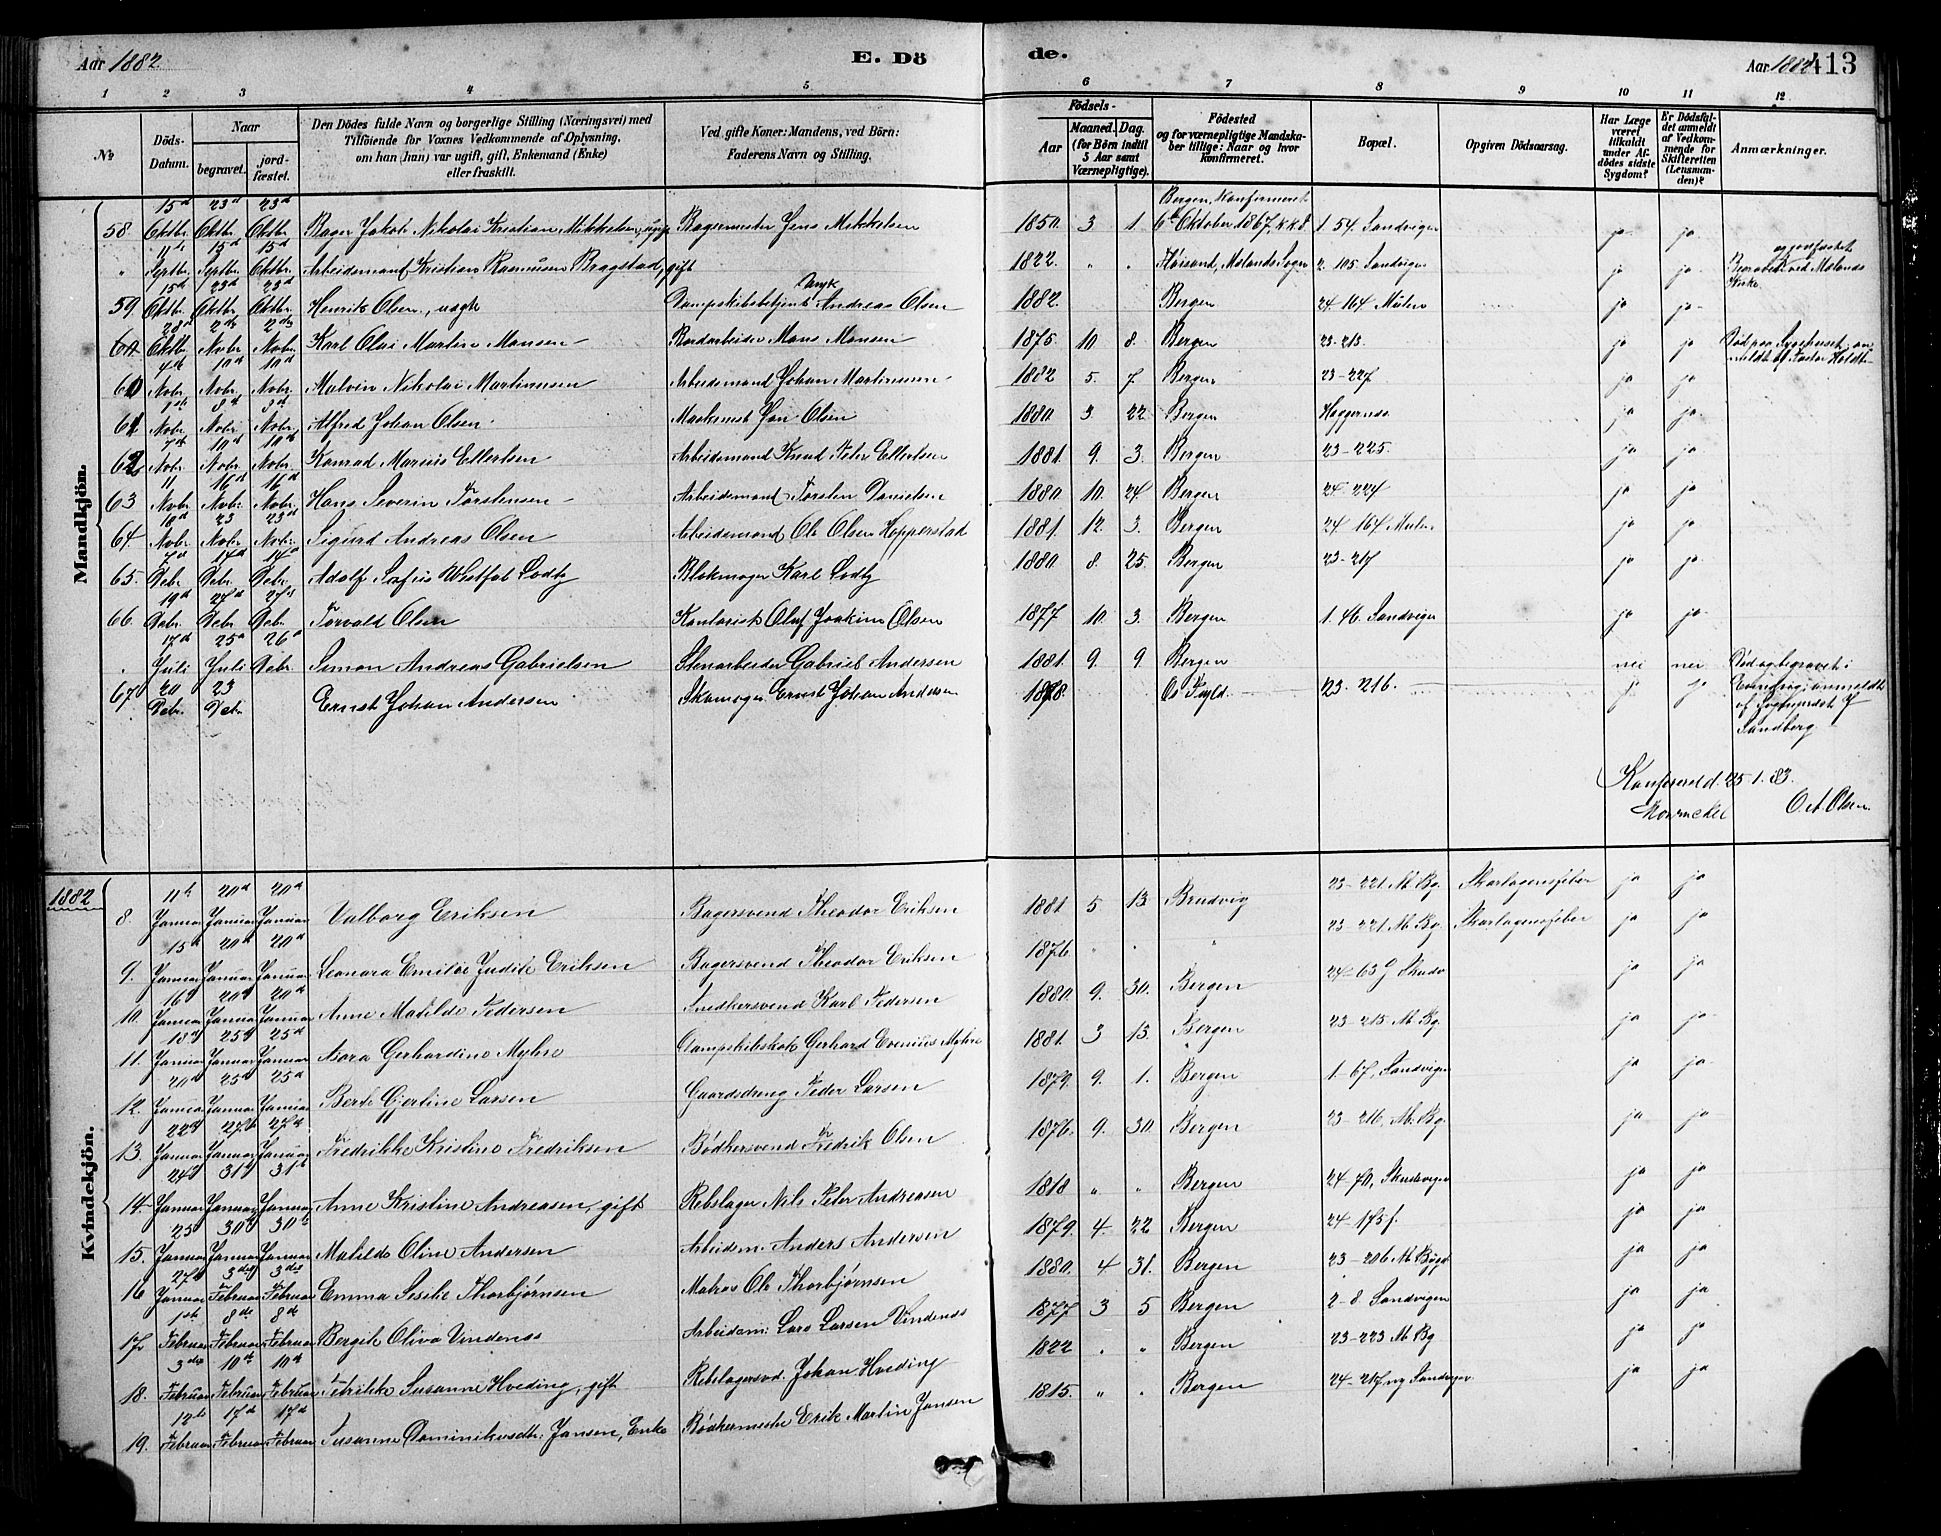 Aar 1882. E. Dö de. Aar 1882. 413
1 2 3 4 5 6 7 8 9 10 11 12
№ Döds-Datum. Naar begravet. jord-fæstet. Den Dödes fulde Navn og borgerlige Stilling (Næringsvei) med Tilföiende for Voxnes Vedkommende af Oplysning, om han (hun) var ugift, gift, Enkemand (Enke) eller fraskilt. Ved gifte Koner: Mandens, ved Börn: Faderens Navn og Stilling. Födsels- Aar Maaned. Dag. (for Börn indtil 5 Aar samt Værnepligtige). Födested og for værnepligtige Mandska-ber tillige: Naar og hvor konfirmeret. Bopæl. Opgiven Dödsaarsag. Har Læge været tilkaldt under Af-dödes sidste Sygdom? Er Dödsfal-det anmeldt af Vedkom-mende for Skifteretten (Lensman-den)? Anmærkninger.
Mandkjön.
58. 15d Oktbr. 23d Oktbr. 23d Oktbr. Bager Jakob Nikolai Kristian Mikkelsen, ugg Bagermester Jens Mikkelsen 1850. 3 1. Bergen, Konfirmeret 6te Oktober 1867, K.K.d. 1. 54 Sandvigen ja ja
" 11te Septbr. 15d Septbr. 15d Oktbr. Arbeidsmand Kristian Rasmussen Bragstad, gift 1822. " " Fløisand, Mælands Sogn 2. 105 Sandvigen ja ja Begravet og jordfæstet ved Mælands Kirke.
59. 15d Oktbr. 23d Oktbr. 23d Oktbr. Henrik Olsen, uægte Dampskibsbetjent Andreas Olsen 1882. Bergen 24-164 Mulen ja ja
60 28d Oktbr. 2de Nobr. 2de Nobr. Karl Olai Martin Monsen Bordarbeider Mons Monsen 1875 10 8. Bergen 23-213. ja ja Død paa Sygehuset, anmeldt af Pastor Holdt
60 4de Nobr. 10d Nobr. 10d Nobr. Malvin Nikolai Martinussen Arbeidsmand Johan Martinussen 1882 5. 7 Bergen 23-227 ja ja
61 1ste Nobr. 8d Nobr. 8d Nobr. Alfred Johan Olsen Maskinist Jan Olsen 1880. 3 22. Bergen Heggernes ja ja
62 7de Nobr. 10d Nobr. 10d Nobr. Konrad Marius Ellertsen Arbeidsmand Knud Peter Ellertsen 1881. 9. 3. Bergen 23-225. ja ja
63 11 Nobr. 16d Nobr. 16d Nobr. Hans Severin Torstensen Arbeidsmand Torsten Danielsen 1880. 10. 24 Bergen 24-224 ja ja
64. 18d Nobr. 23 Nobr. 23d Nobr. Sigurd Andreas Olsen Arbeidsmand Ole Olsen Hopperstad 1881. 12. 3. Bergen 24-164 Mulen ja ja
65. 7d Debr. 14d Debr. 14d Debr. Adolf Sofus Westfal Lodtz Blokmager Karl Lodtz 1880 8. 25. Bergen 23-217 ja ja
66. 19d Debr. 27d Debr. 27d Debr. Torvald Olsen Kontorist Oluf Joakim Olsen 1877 10. 3. Bergen 1. 46. Sandvigen ja ja
. 17d Juli 25d Juli 26d Debr. Simon Andreas Gabrielsen Stenarbeider Gabriel Andersen 1881. 9. 9 Bergen nei nei Død og begravet i
67. 20 Debr. 23 Debr. Ernst Johan Andersen Skomager Ernst Johan Andersen 1878. Os Præstegjeld. 23. 216. ja ja anmeldt af Sogneprest J Sandberg
Konfereret d. 25-1. 83.
O. A. Olsen
Kvindekjön.
1882
8. 11te Januar 20d Januar 20d Januar Valborg Eriksen Bagersvend Theodor Eriksen 1881 5 13 Bruvig 23-221 M. Bg. Skarlagensfeber ja ja
9. 15d Januar 20d Januar 20d Januar Leonora Emilie Judit Eriksen Bagersvend Theodor Eriksen 1876. " " " 23-221. M. Bg. Skarlagensfeber ja ja
10. 16d Januar 20d Januar 20d Januar Anne Matilde Pedersen Snedkersvend Karl Pedersen 1880. 9. 30. Bergen 24-65 g Skudv ja ja
11. 18d Januar 25d Januar 25d Januar Aara Gerhardine Myhre Dampskibskok Gerhard Evenius Myhre 1881. 3 13. Bergen 23-215 M. Bg. ja ja
12. 20d Januar 25d Januar 25d Januar Berte Gjertine Larsen Gaardsdreng Peder Larsen 1879. 9. 1. Bergen 1-67, Sandvigen ja ja
13. 22d Januar 27d Januar 27d Januar Fredrikke Kristine Fredriksen Bødkersvend Fredrik Olsen 1876. 9. 30. Bergen 23-216, M. Bg. ja ja
14. 24d Januar 31d Januar 31te Januar Anne Kristine Andreasen, gift Rebslager Nils Peter Andreasen 1818 " " Bergen 24-70, Skudevigen ja ja
15. 25 Januar 30d Januar 30te Januar Matilde Oline Andersen Arbeidsm. Anders Andersen 1879. 4. 22 Bergen 24-175 f. ja ja
16 27d Januar 3die Februar 3die Februar Emma Sesilie Thorbjørnsen Matros Ole Thorbjørnsen 1880. 4 31. Bergen 23-206 M. Bygd ja ja
17. 1ste Februar 8de Februar 8de Februar Bergit Oliva Vindenes Arbeidsm: Lars Larsen Vindenes 1877 3 5 Bergen 2-8 Sandvigen ja ja
18. 3die Februar 10de Februar 10de Februar Petrikke Susanne Hveding, gift Rebslagersvd. Johan Hveding 1822 " " Bergen 23-223 M. Bg ja ja
19. 12te Februar 17d Februar 17d Februar Susanne Dominikusdtr: Jansen, Enke Bødkermester Erik Martin Jansen 1815. " " Bergen 24-217 ny Sandvigen ja ja